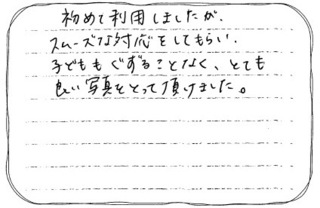 初めて利用しましたが、
スムーズな対応をしてもらい、
子どももぐずることなく、とても
良い写真をとって頂けました。